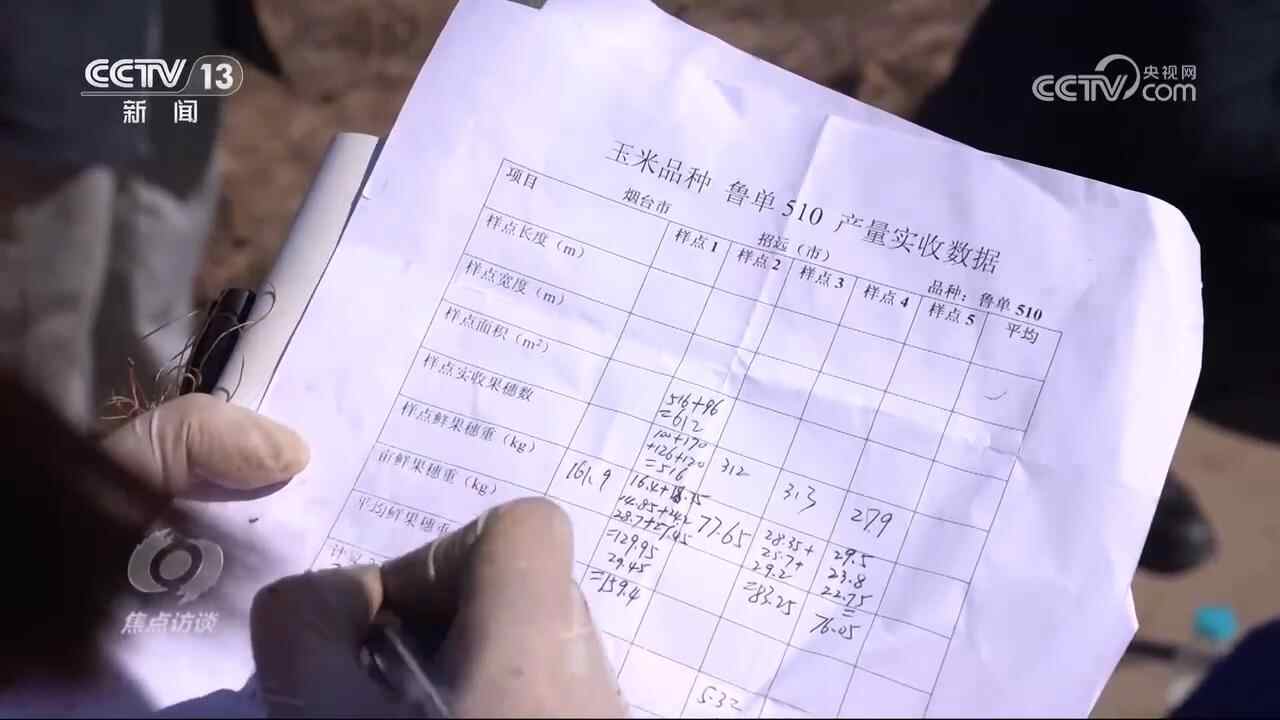 CCTV 13
新闻
央视网
CCTV.com
玉米品种 鲁单 510 产量实收数据
烟台市 招远（市） 品种：鲁单 510
项目 样点 1 样点 2 样点 3 样点 4 样点 5 平均
样点长度（m）
样点宽度（m）
样点面积（m²）
样点实收果穗数
516+96
=612
100+170
+126+120
=516
312
313
279
样点鲜果穗重（kg）
161.9
16.4+18.15
28.7+27.45
=129.95
29.45
=159.4
77.65
28.35+
25.7+
29.2
=83.25
29.5
23.8
22.75
=
76.05
亩鲜果穗重（kg）
平均鲜果穗重
5.32
焦点访谈